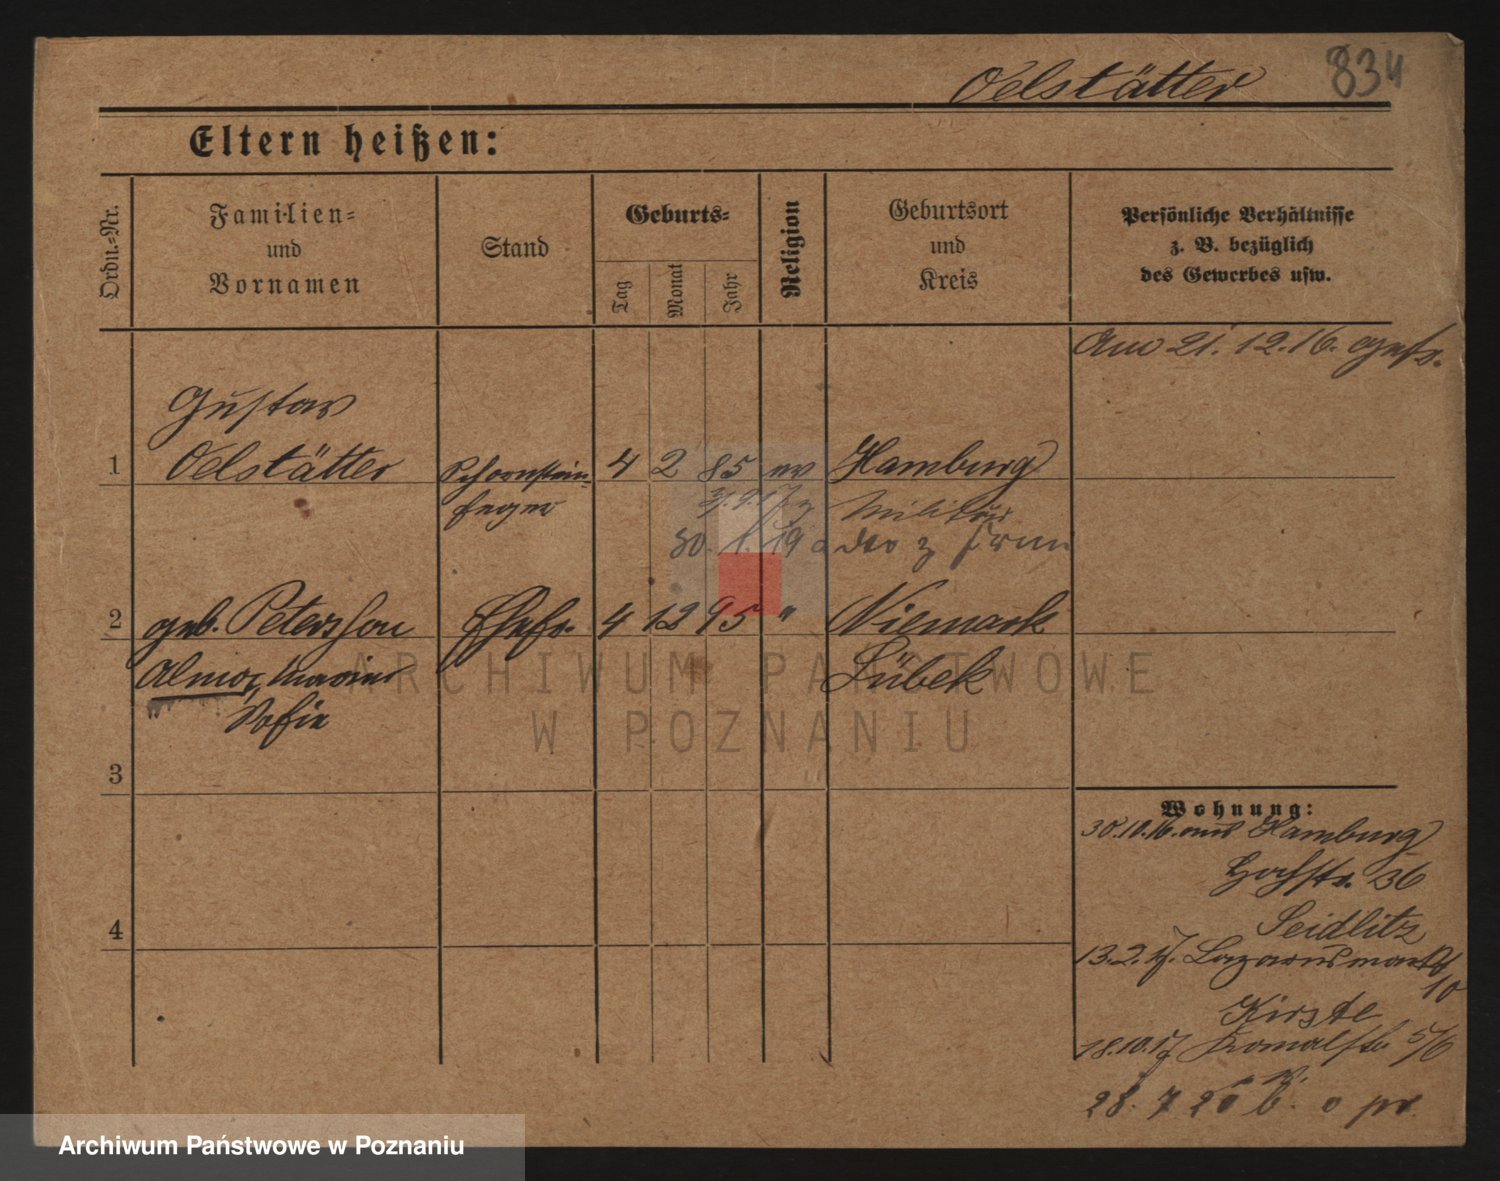 Oelstätter 834
Eltern heißen:
Ordn.-Nr.
Familien-
und
Vornamen
Stand
Geburts-
Tag
Monat
Jahr
Religion
Geburtsort
und
Kreis
Persönliche Verhältnisse
z. B. bezüglich
des Gewerbes usw.
Am 21.12.16.
Gustav
1 Oelstätter Schornstein- 4 2 85 ev Hamburg
feger Militär
30. 1. 19
2 geb. Petersson Ehefr. 4 12 95 " Niemark
Alma, Marie Lübek
Sofie
3
4
Wohnung:
30.10.16. aus Hamburg
Hochstr. 36
Seidlitz
13.2.17. Lazarusmarkt
10
Kirste
18.10.17 5/6
28. 7 20
ARCHIWUM PAŃSTWOWE
W POZNANIU
Archiwum Państwowe w Poznaniu